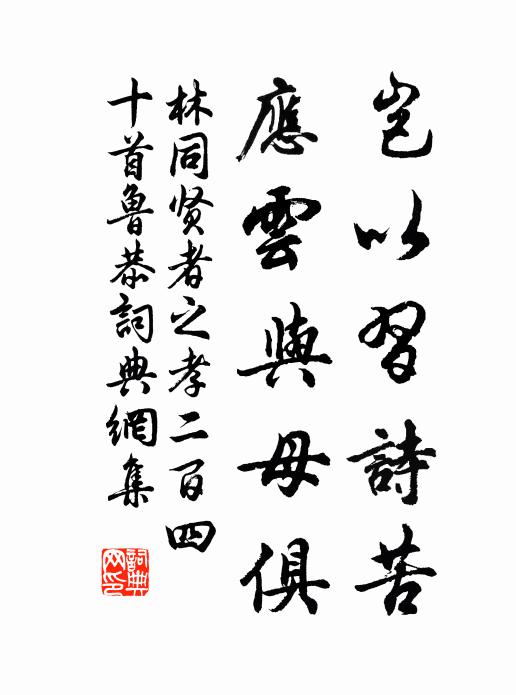 豈以習詩苦
應雲與母俱
林同贤者之孝二百四
十首魯恭詞典網集
詞典网印